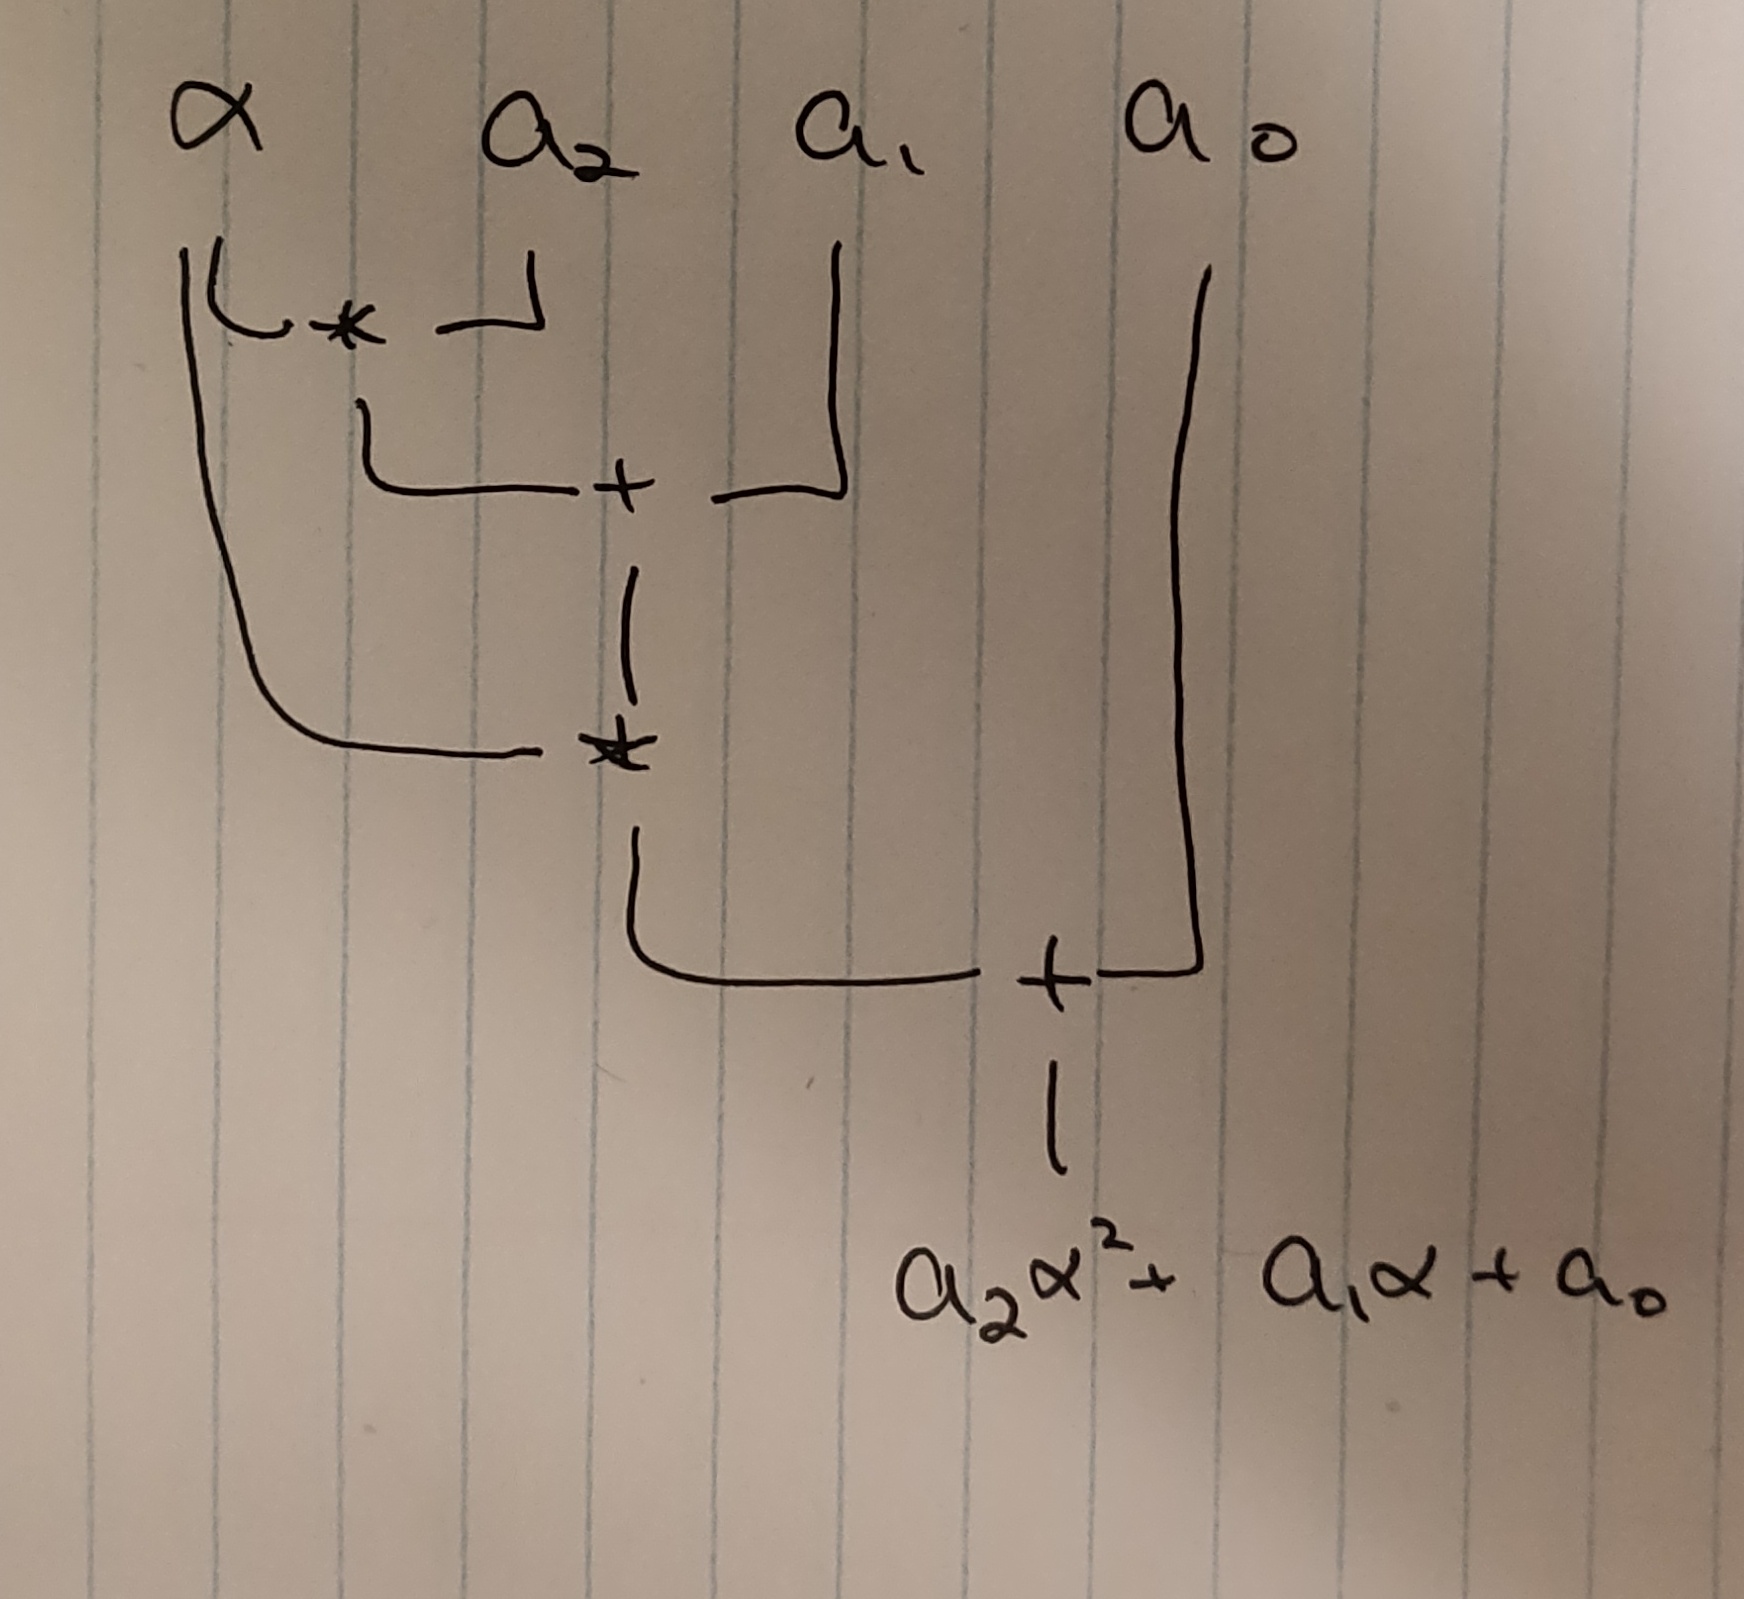 α a₂ a₁ a₀
*
+
*
+
a₂α² + a₁α + a₀